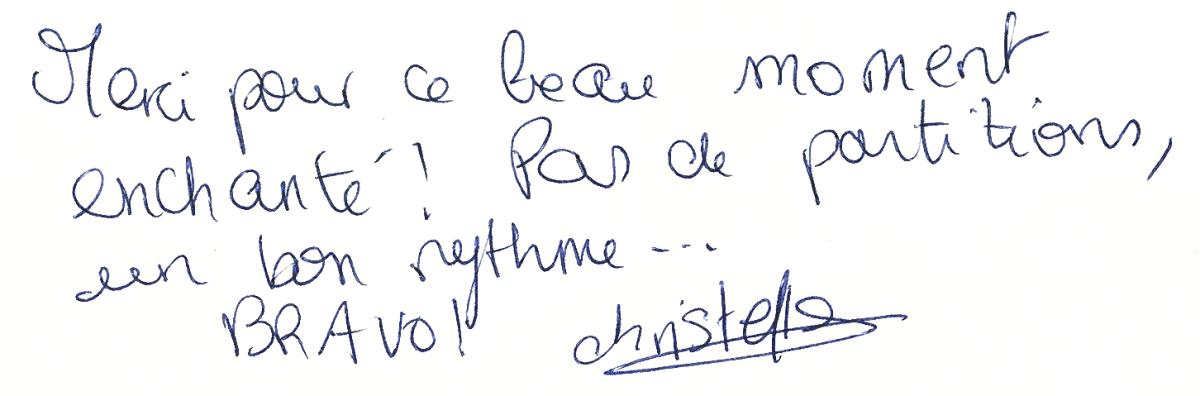 Merci pour ce beau moment
enchanté! Pas de partitions,
un bon rythme ...
BRAVO! Christelle